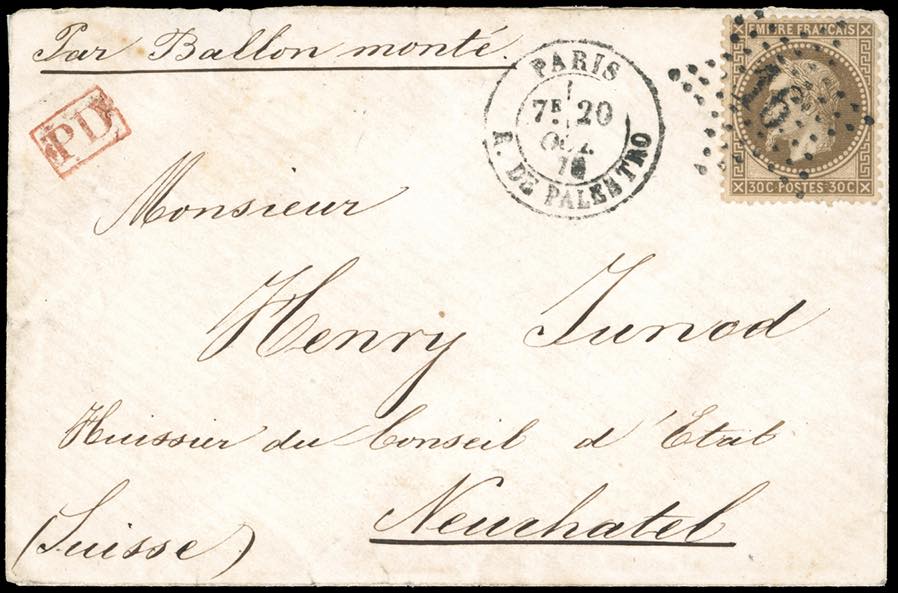 Par Ballon monté
PD
PARIS
7E 20
OCT.
70
R. DE PALESTRO
EMPIRE FRANÇAIS
30C POSTES 30C
Monsieur
Henry Junod
Huissier du Conseil d'Etat
Neuchatel
(Suisse)